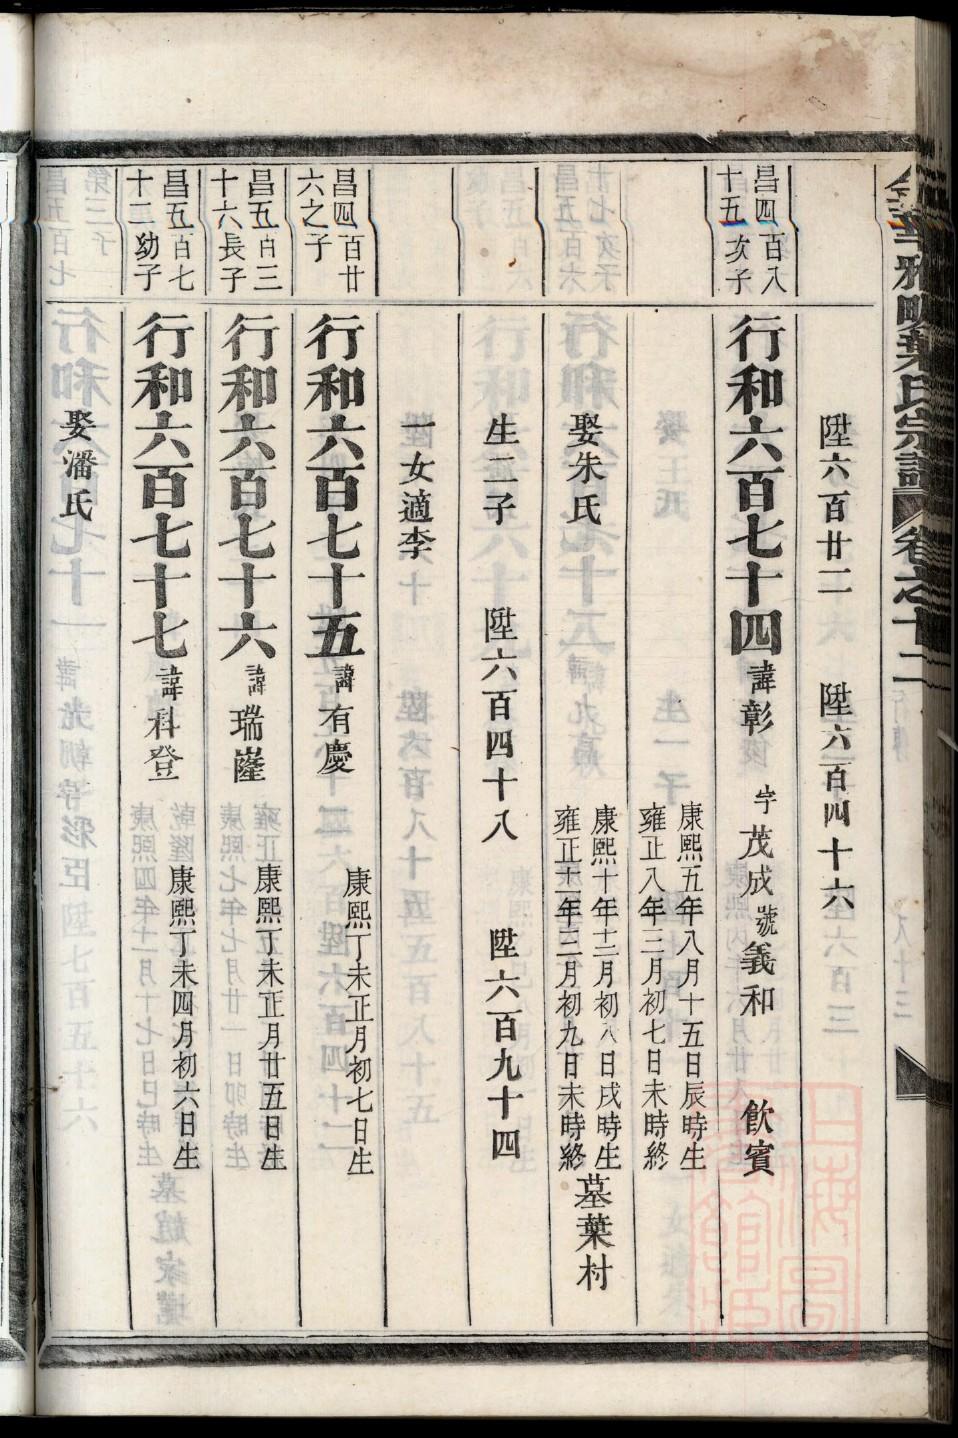 金華雅畈葉氏宗譜 卷之十二
陞六百廿二 陞六百四十六
昌四百八十五次子
行和六百七十四 諱彰 字茂成 號義和 飲賓
康熙五年八月十五日辰時生
雍正八年三月初七日未時終
娶朱氏
康熙十年十二月初八日戌時生
雍正十一年三月初九日未時終
墓葉村
生二子 陞六百四十八 陞六百九十四
一女適李
昌四百廿六之子
行和六百七十五 諱有慶 康熙丁未正月初七日生
昌五百三十六長子
行和六百七十六 諱瑞薩 康熙丁未正月廿五日生
昌五百七十二幼子
行和六百七十七 諱科登 康熙丁未四月初六日生
娶潘氏